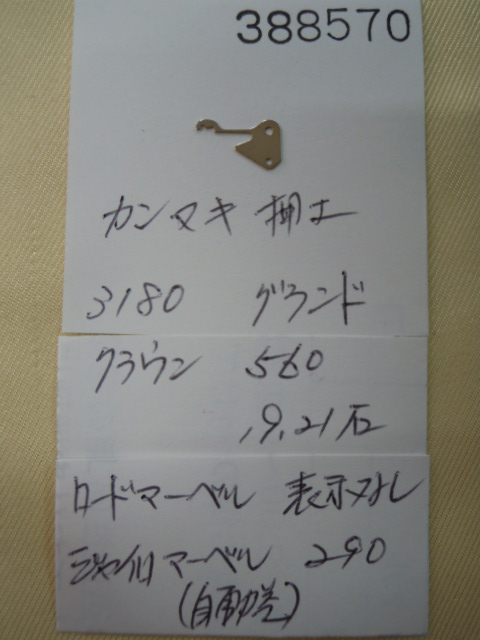 388570
カンヌキ 押エ
3180 グランド
クラウン 560
19.21石
ロードマーベル 表示ナシ
ジャイロマーベル 290
(自動巻)